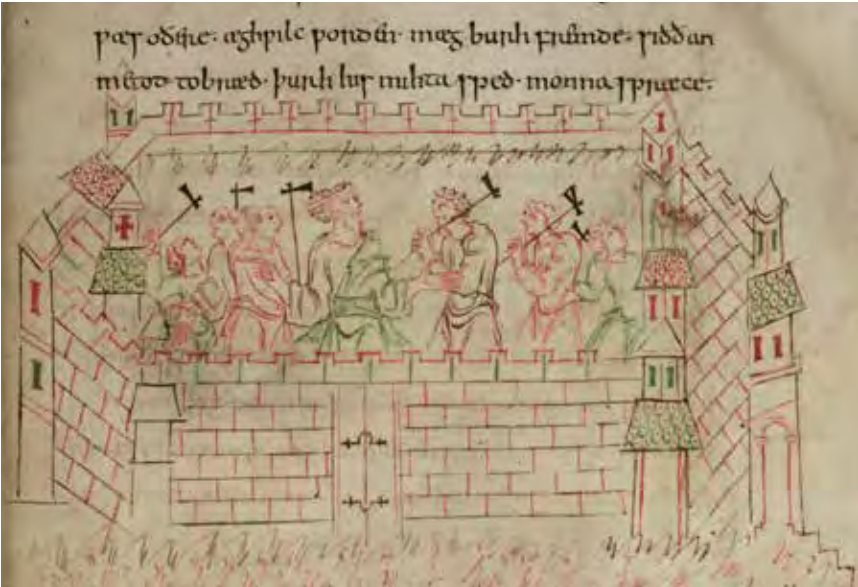 ƿæs oðere· æghƿilc ƿorden· mæg burh fremde· siððan
metod tobræd· þurh his mihta sped· monna spræce·